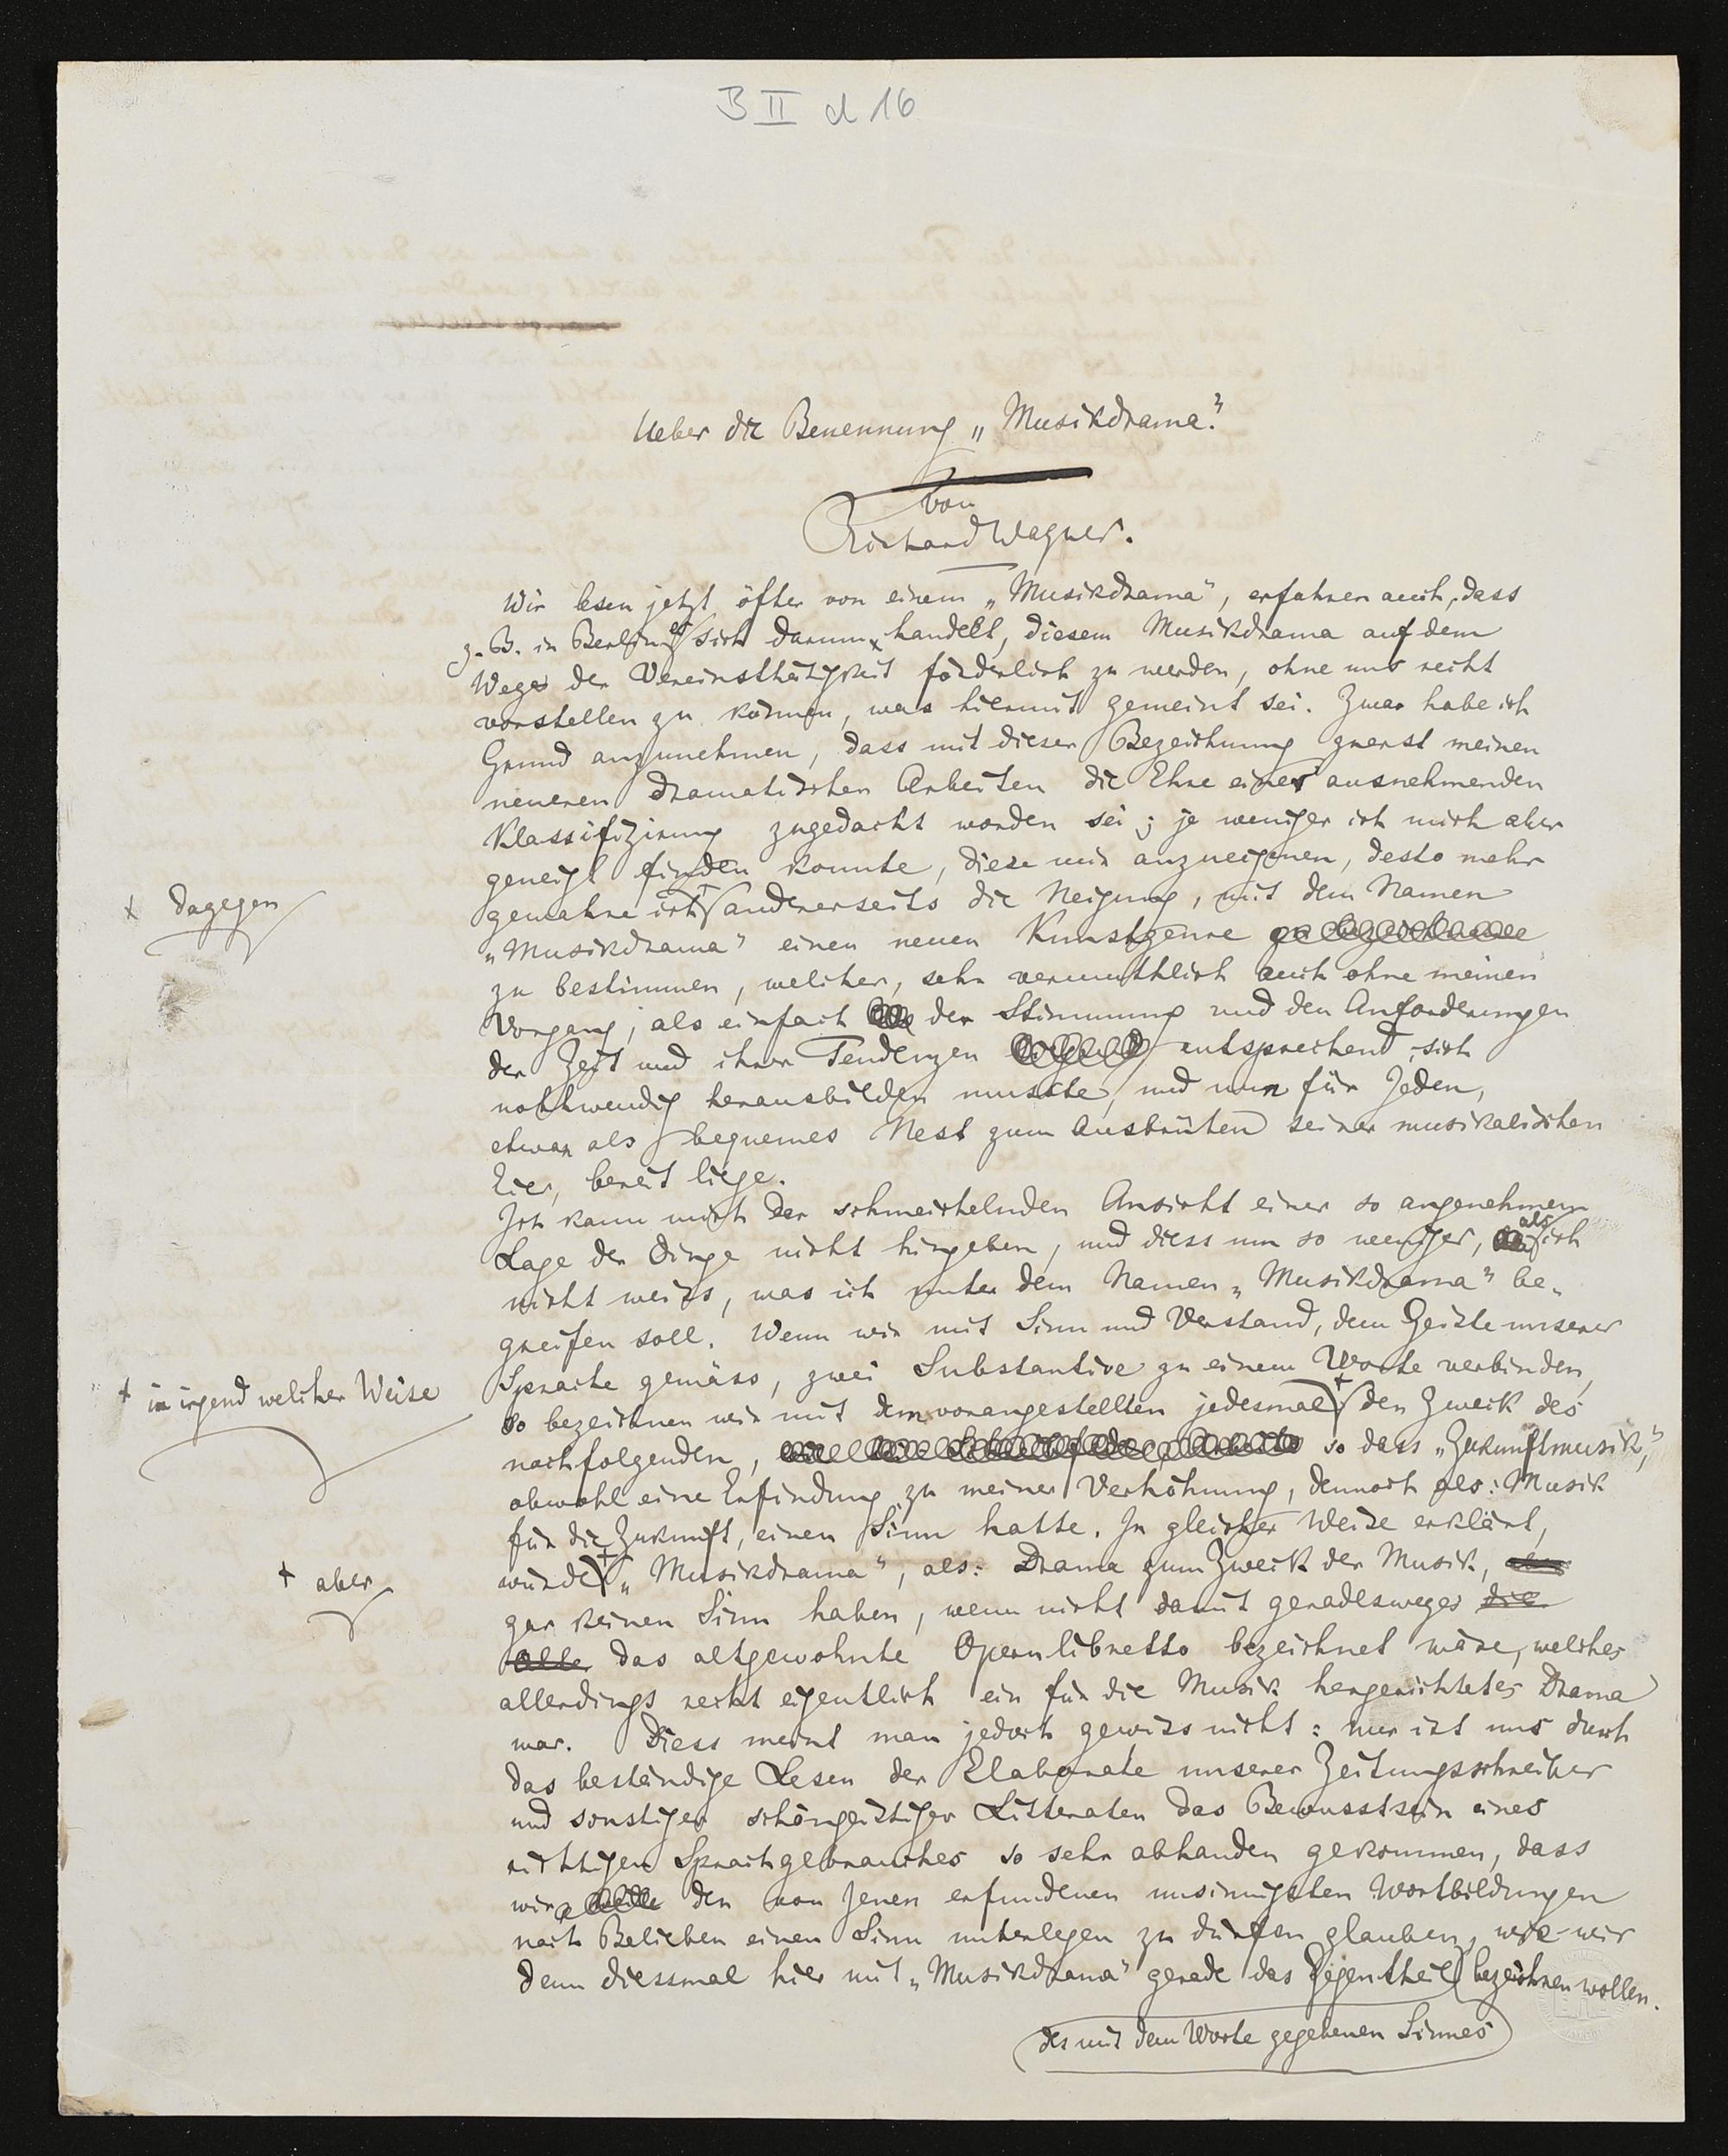 B II d 16
Ueber die Benennung „Musikdrama."
von
Richard Wagner.
Wir lesen jetzt öfter von einem „Musikdrama", erfahren auch, dass
z. B. in Berlin es sich darum handelt, diesem Musikdrama auf dem
Wege der Vereinsthätigkeit förderlich zu werden, ohne uns recht
vorstellen zu können, was hiermit gemeint sei. Zwar habe ich
Grund anzunehmen, dass mit dieser Bezeichnung zuerst meinen
neueren dramatischen Arbeiten die Ehre einer ausnehmenden
Klassifizirung zugedacht worden sei; je weniger ich mich aber
geneigt finden konnte, diese mir anzueignen, desto mehr
+ dagegen
gewahre ich + andererseits die Neigung, mit dem Namen
„Musikdrama" einen neuen Kunstgenre zu bezeichnen
zu bestimmen, welcher, sehr vermuthlich auch ohne meinen
Vorgang, als einfach der Stimmung und den Anforderungen
der Zeit und ihrer Tendenzen entsprechend, sich
nothwendig herausbilden musste, und nun für Jeden,
etwa als bequemes Nest zum Ausbrüten seiner musikalischen
Eier, bereit liege.
Ich kann mich der schmeichelnden Ansicht einer so angenehmen
Lage der Dinge nicht hingeben, und diess um so weniger, als ich
nicht weiss, was ich unter dem Namen „Musikdrama" be-
greifen soll. Wenn wir mit Sinn und Verstand, dem Geiste unserer
Sprache gemäss, zwei Substantive zu einem Worte verbinden,
+ in irgend welcher Weise
so bezeichnen wir mit dem vorangestellten jedesmal + den Zweck des
nachfolgenden, so dass „Zukunftsmusik,"
obwohl eine Erfindung zu meiner Verhöhnung, dennoch als: Musik
für die Zukunft, einen Sinn hatte. In gleicher Weise erklärt,
+ aber
würde + „Musikdrama", als: Drama zum Zweck der Musik,
gar keinen Sinn haben, wenn nicht damit geradesweges die
alte das altgewohnte Opernlibretto bezeichnet wäre, welches
allerdings recht eigentlich ein für die Musik hergerichtetes Drama
war. Diess meint man jedoch gewiss nicht: nur ist uns durch
das beständige Lesen der Elaborate unserer Zeitungsschreiber
und sonstiger schöngeistiger Litteraten das Bewusstsein eines
richtigen Sprachgebrauches so sehr abhanden gekommen, dass
wir den von Jenen erfundenen unsinnigsten Wortbildungen
nach Belieben einen Sinn unterlegen zu dürfen glauben, wie wir
denn diessmal hier mit „Musikdrama" gerade das Gegentheil bezeichnen wollen.
des mit dem Worte gegebenen Sinnes